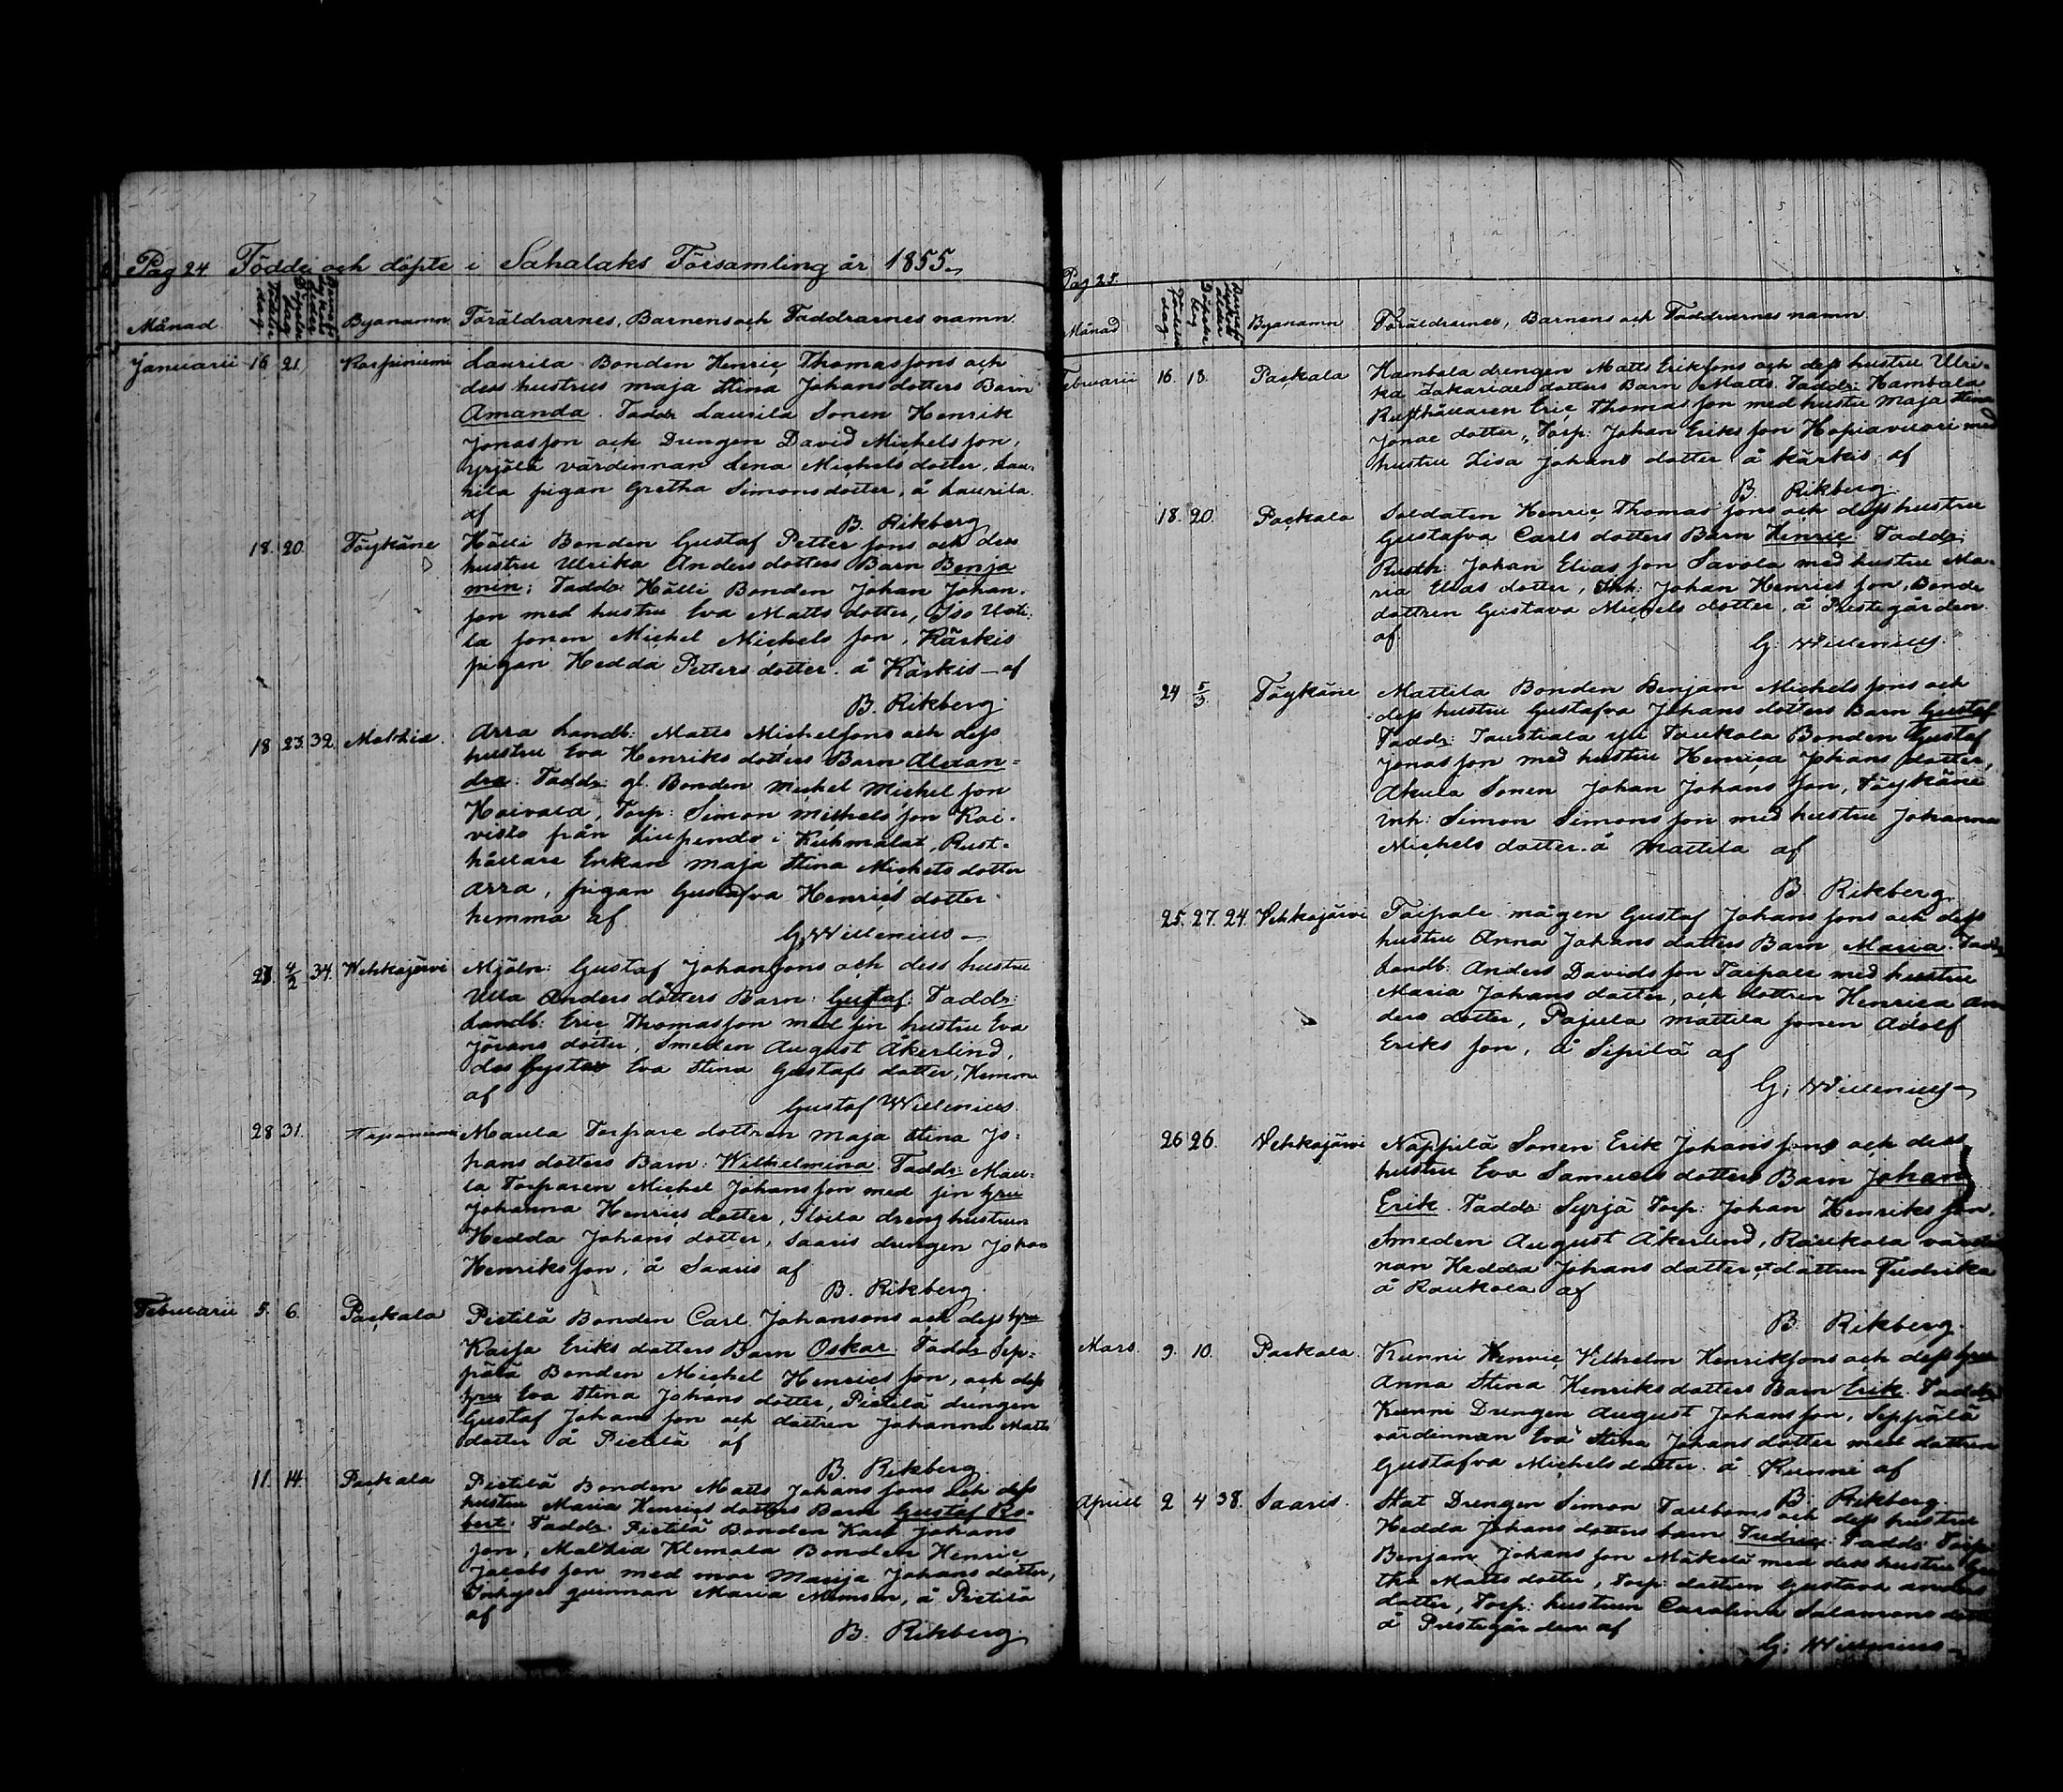 Pag 24 Födde och döpte i Sahalaks Församling år 1855
Månad Byanamn Föräldrarnes, Barnens och Faddrarnes namn
Januarii 16 21 Laurila Bonden Henric Thomasfons och
dess hustrus Maja Stina Johansdotters Barn
Amanda. Faddr Laurila Sonen Henrik
Jonasfon och Drengen David Michelsfon,
Yrjölä värdinnan Lena Michelsdotter, Lau-
rila pigan Gretha Simonsdotter, å Laurila
af
B. Rikberg
18. 20. Töykäne Hölli Bonden Gustaf Petter fons och des
hustru Ulrika Anders dotters Barn Benja
min; Faddr Hölli Bonden Johan Johan-
fon med hustru Eva Matts dotter, Iso Uoti-
la fonen Michel Michels fon, Kärkis
pigan Hedda Petters dotter. å Kärkis – af
B. Rikberg
18 23. 32. Arra Landb: Matts Michelfons och defs
hustru Eva Henriks dotters Barn Alexan=
dra: Faddr: gl. Bonden Michel Michel fon
Torp: Simon Michels fon Koi-
visto från i Kuhmalax, Rust-
hållare Enkan Maja Stina Michels dotter
Arra, pigan Gustafva Henrics dotter
hemma af
G. Willenius –
4/2 34. Wehkajärvi Mjöln: Gustaf Johansfons och dess hustru
Ulla Anders dotters Barn: Gustaf. Faddr:
Landb: Eric Thomasfon med fin hustru Eva
Jörans dotter, Smeden August Åkerlind,
des fyster Eva Stina Gustafs dotter,
af
Gustaf Willenius.
28 31. Maula Torpare dottren Maja Stina Jo-
hans dotters Barn: Wilhelmina. Faddr: Mau-
la Torparen Michel Johansfon med fin hru
Johanna Henrics dotter, drenghustrun
Hedda Johans dotter, Saaris drengen Johan
Henriksfon, å Saaris af
B. Rikberg.
Februarii 5. 6. Packala Pietilä Bonden Carl Johansons och defs hru
Kaisa Eriks dotters Barn Oskar. Faddr Sep-
pälä Bonden Michel Henrics fon, och defs
hru Eva Stina Johans dotter, Pietilä drengen
Gustaf Johans fon och dottren Johanna Matts
dotter å Pietilä af
B. Rikberg
11. 14. Packala Pietilä Bonden Matts Johans fons och defs
hustru Maria Henrics dotters Barn Gustaf Ro-
bert. Faddr. Pietilä Bonden Karl Johans
fon, Klemola Bonden Henric
Jacobs fon med mor Marija Johans dotter,
qvinnan Maria å Pietilä
af
B. Rikberg
Pag 25.
Månad Byanamn Föräldrarnes, Barnens och Faddrarnes namn
Februarii 16. 18. Packala Hambala drengen Matts Erikfons och defs hustru Ulri-
ka Zakariae dotters Barn Matts. Faddr: Hambala
Rusthållaren Eric Thomas fon med hustru Maja Stina
Jonae dotter, Torp: Johan Eriks fon med
hustru Lisa Johans dotter å Kärkis, af
B. Rikberg
18. 20. Packala Soldaten Henric Thomas fons och defs hustru
Gustafva Carls dotters Barn Henric Faddr:
Rusth: Johan Elias fon Savola med hustru Ma-
ria Elias dotter, Inh: Johan Henrics fon, Bonde
dottren Gustava Michels dotter, å Prestegården
af
G. Willenius.
24 5/3. Töykäne Mattila Bonden Benjam Michels fons och
defs hustru Gustafva Johans dotters Barn Gustaf
Faddr: Taustiala Bonden Gustaf
Jonasfon med hustru Henrica Johans dotter,
Akula Sonen Johan Johans fon, Töykäne
Inh: Simon Simons fon med hustru Johanna
Michels dotter. å Mattila af
B. Rikberg
25. 27. 24 Vehkajärvi Taipale mågen Gustaf Johans fons och defs
hustru Anna Johans dotters Barn Maria. Faddr
Landb: Anders Davids fon Taipale med hustru
Maria Johans dotter, och dottren Henrica An
ders dotter, Pajula Mattila fonen Adolf
Eriks fon, å Sepilä af
G. Willenius
26 26. Vehkajärvi Näppilä Sonen Erik Johans fons och dess
hustru Eva Samuels dotters Barn Johan
Erik. Faddr: Syrjä Torp: Johan Henriks fon,
Smeden August Åkerlind, Raukola värdin
nan Hedda Johans dotter et dottren Fredrika
å Raukola af
B. Rikberg.
Mars. 9. 10. Packala. Kunni Vilhelm Henrikfons och defs hru
Anna Stina Henriks dotters Barn Erik. Faddr
Kunni Drengen August Johans fon, Seppälä
värdinnan Eva Stina Johans dotter med dottren
Gustafva Michels dotter. å Kunni af
B. Rikberg
Aprill 2 4 38. Saaris. Stat Drengen Simon och defs hustru
Hedda Johans dotters barn Fredric. Faddr: Torp:
Benjam Johans fon Mäkelä med dess hustru Gre
tha Matts dotter, Torp: dottren Gustava Anders
dotter, Torp: hustrun Carolina Salamons dotter
å Prestegården af
G. Willenius